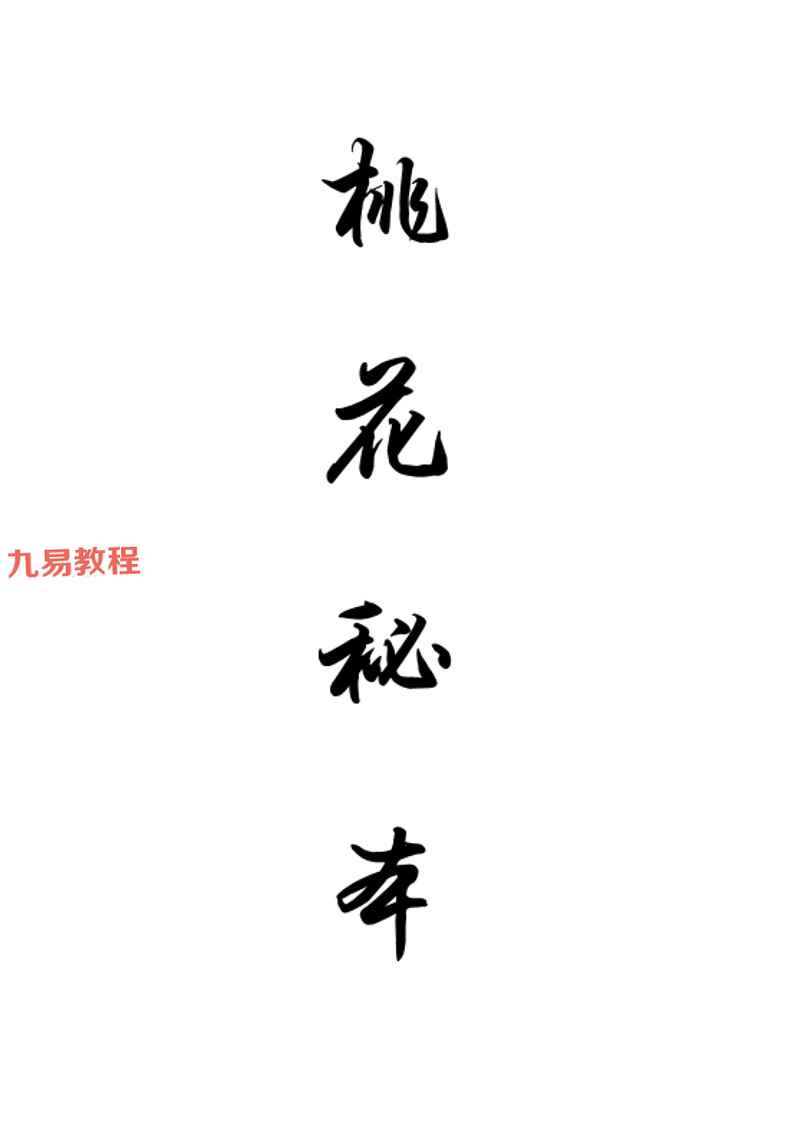 桃花秘本
九易教程